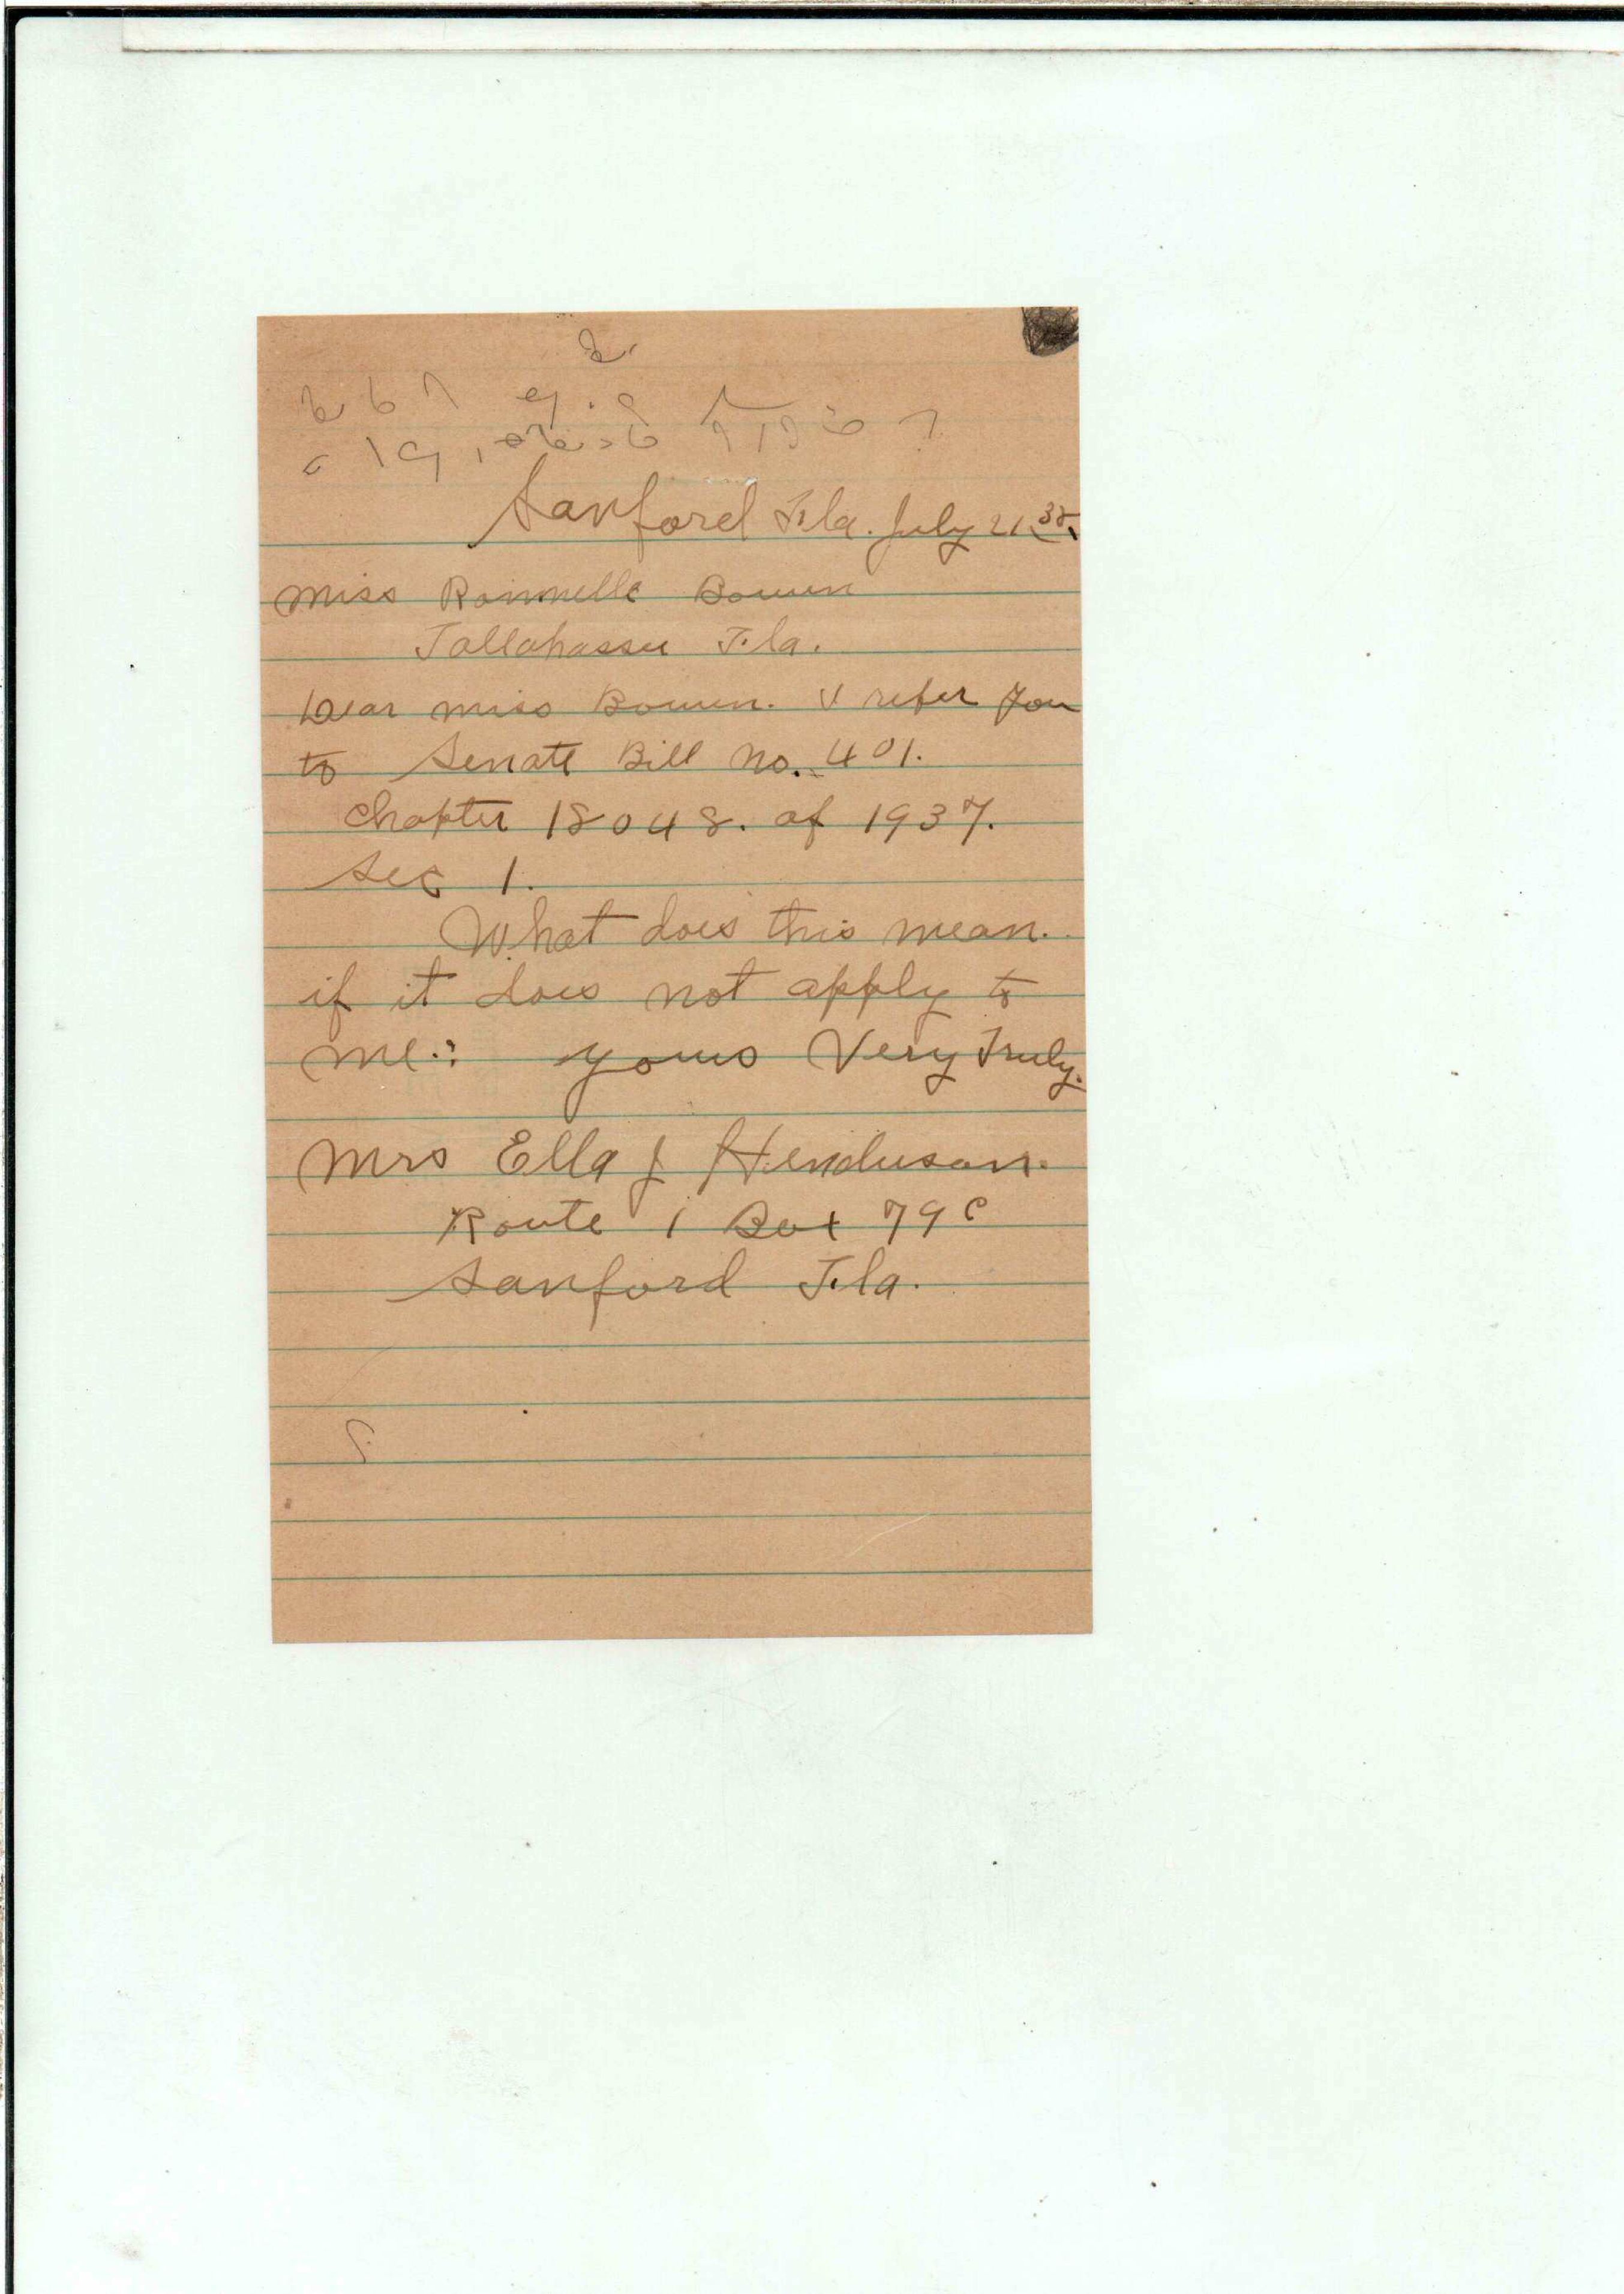 Sanford Fla. July 21 38.
Miss Ronnelle Bowen
Tallahassee Fla.
Dear Miss Bowen. I refer you
to Senate Bill No. 401.
Chapter 18048. of 1937.
Sec 1.
What does this mean.
if it does not apply to
me.: yours Very Truly.
Mrs Ella J Henderson.
Route 1 Box 79C
Sanford Fla.